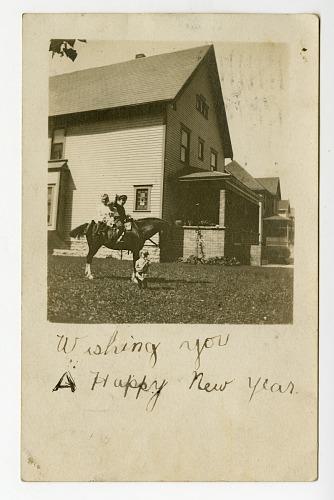 Wishing you
A Happy New Year.